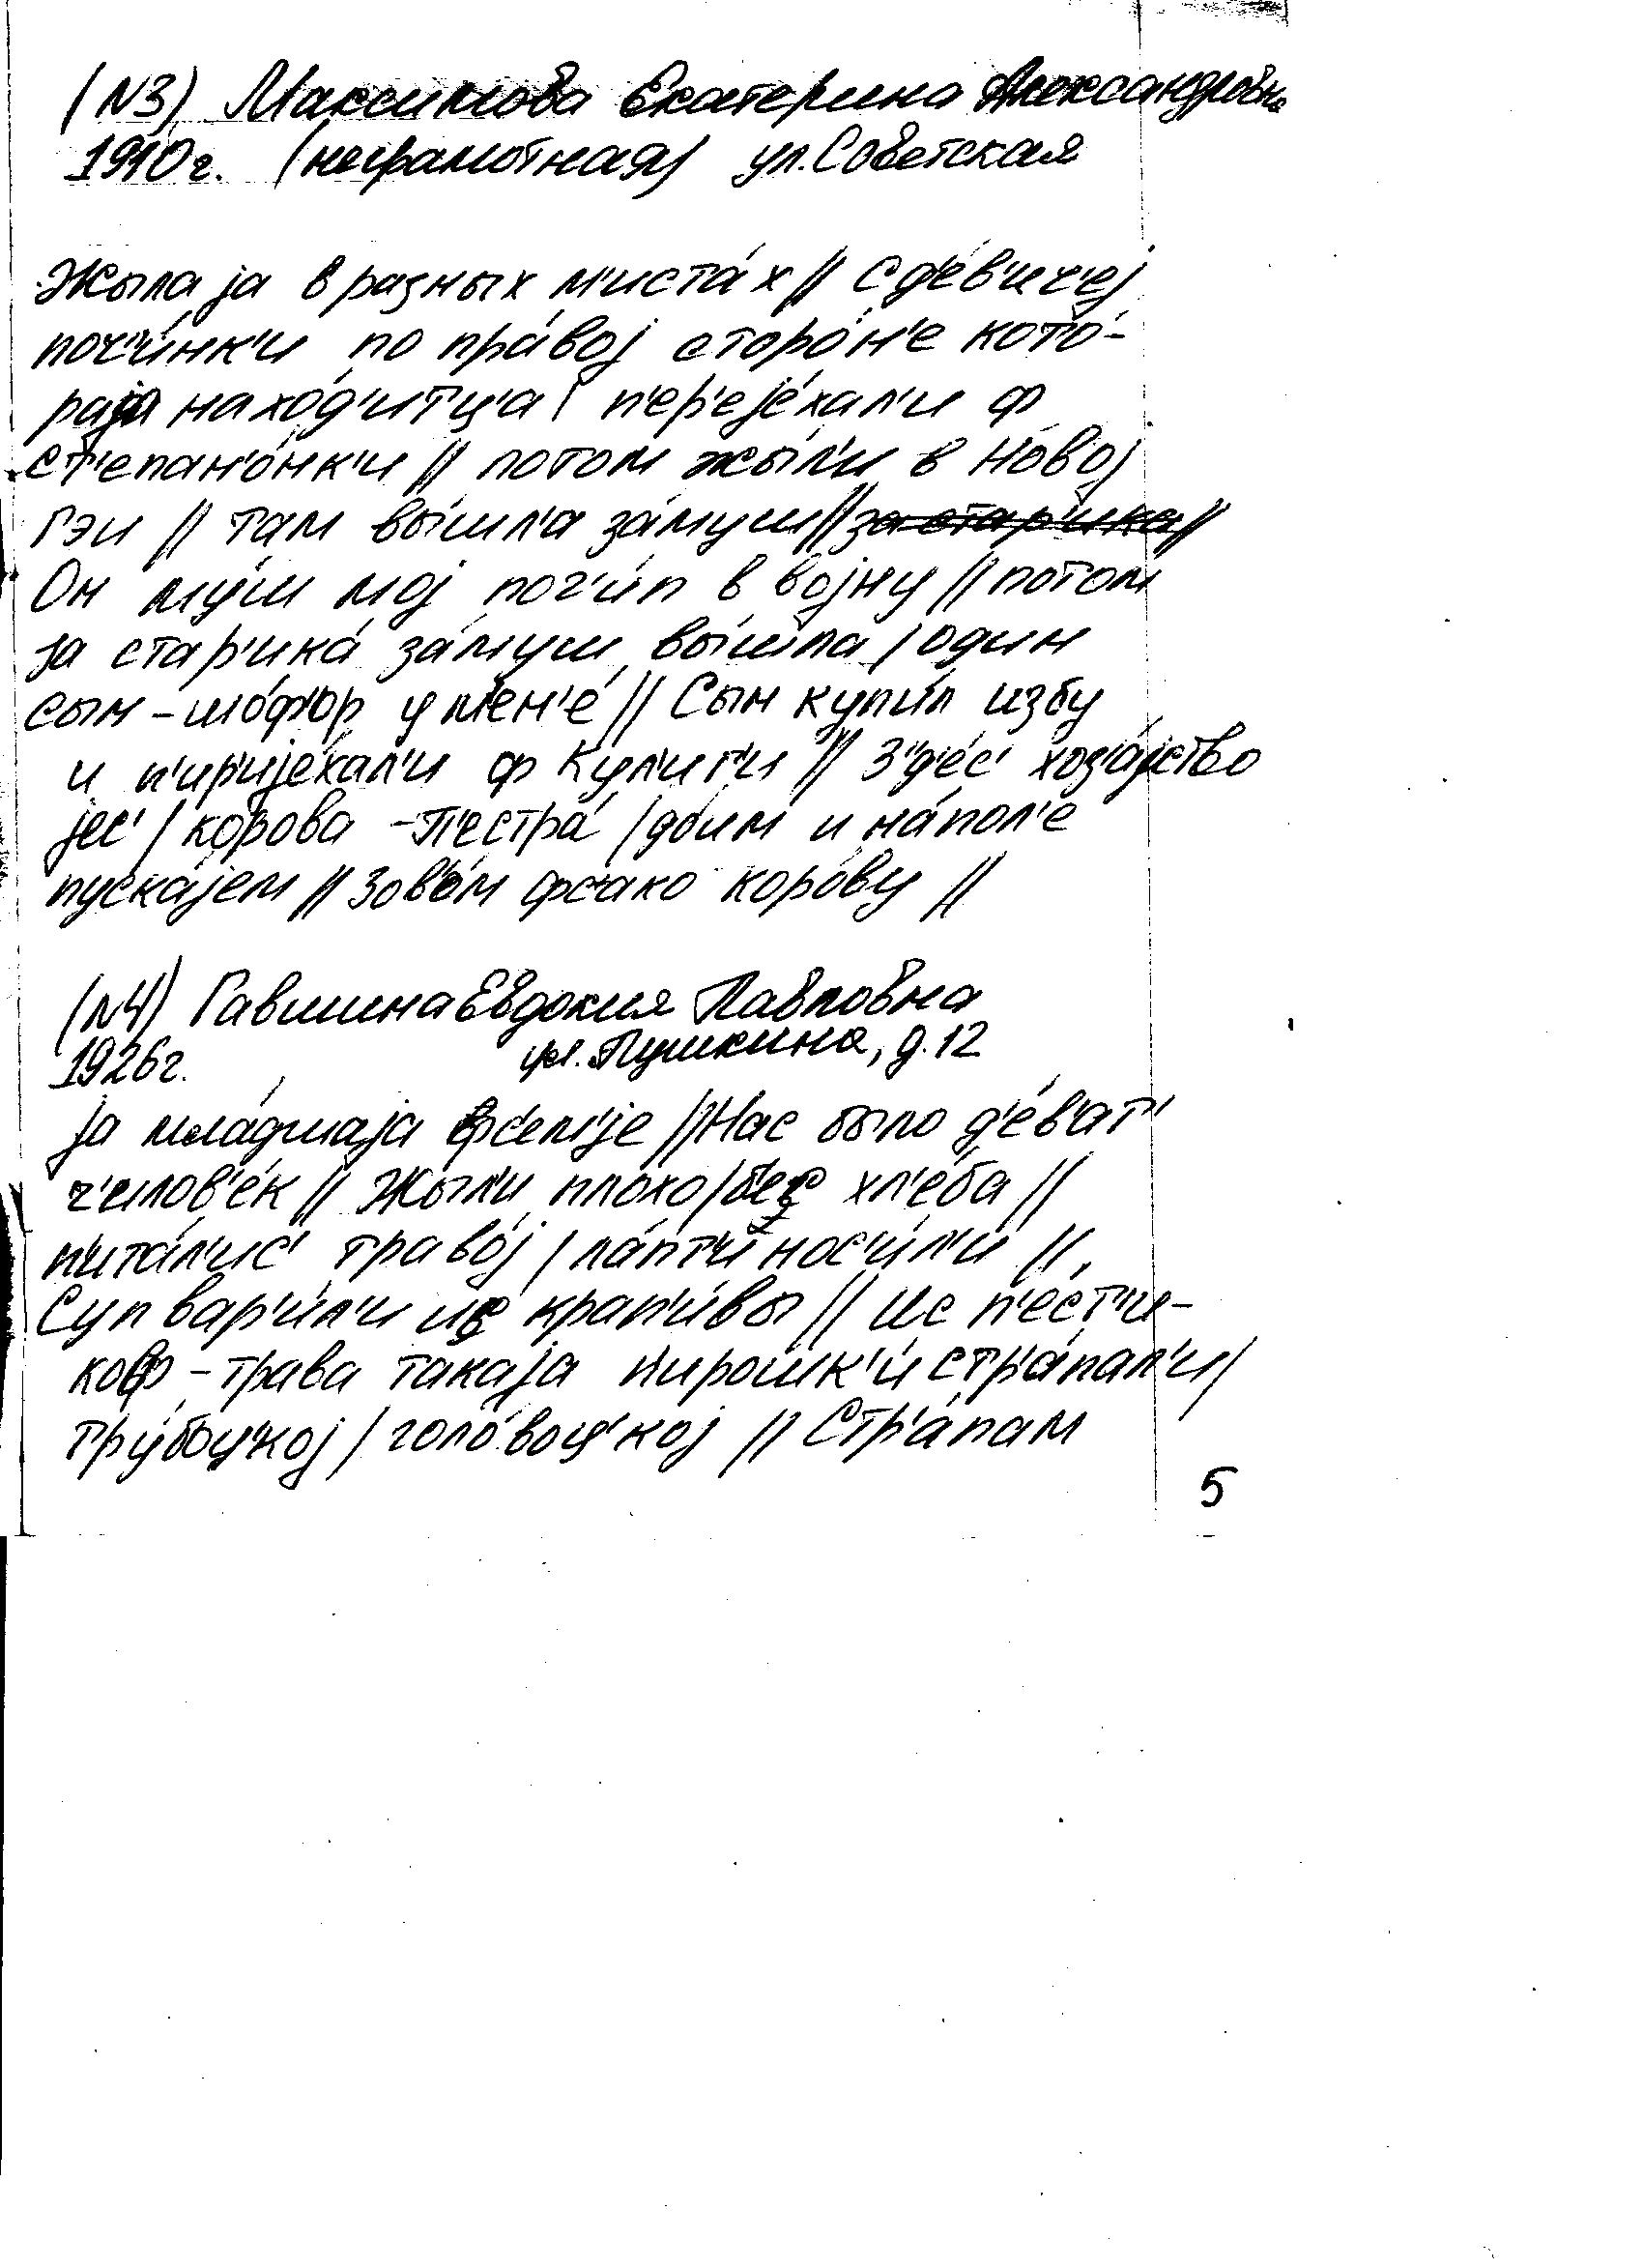 (N3) Максимова Екатерина Александровна
1910г. (неграмотная) ул. Советская
Жыла jа в разных м'иста́х // С д'е́в'ич'еj
поч'и́нк'и по пра́воj сторо́н'е кото́-
раjа нахо́д'итц'а | п'ер'еjе́хал'и ф
ст'епан'о́нк'и // потом жы́л'и в Но́воj
Гэи // там вы́шл'а за́муш // ~~за стар'ика~~ //
Он му́ш моj пог'и́п в воjну // потом
за стар'ика́ за́муш вы́шла / один
сын - шо́ф'ор у м'ен'е́ // Сын куп'и́л избу
и п'ир'иjе́хал'и ф Кул'иг'и // З'д'е́с' хоз'а́jство
jес' / корова - П'естра́ / доим и на́пол'е
пуска́jем // Зов'о́м фс'ако коро́ву //
(N4) Гавшина Евдокия Павловна
1926г. ул. Пушкина, д. 12
jа мла́дшаjа фс'ем'jе // Нас было д'е́в'ат'
ч'илов'е́к // Жы́л'и пло́хо / б'ес хл'е́ба //
п'ита́л'ис' траво́j / ла́пт'и нос'и́л'и //
Суп вар'и́л'и ис крап'и́вы // Ис п'е́ст'и-
коф - трава такаjа п'ирошк'и́ стр'а́пал'и /
тру́боц'коj / голо́воц'коj // Стр'а́пам
5